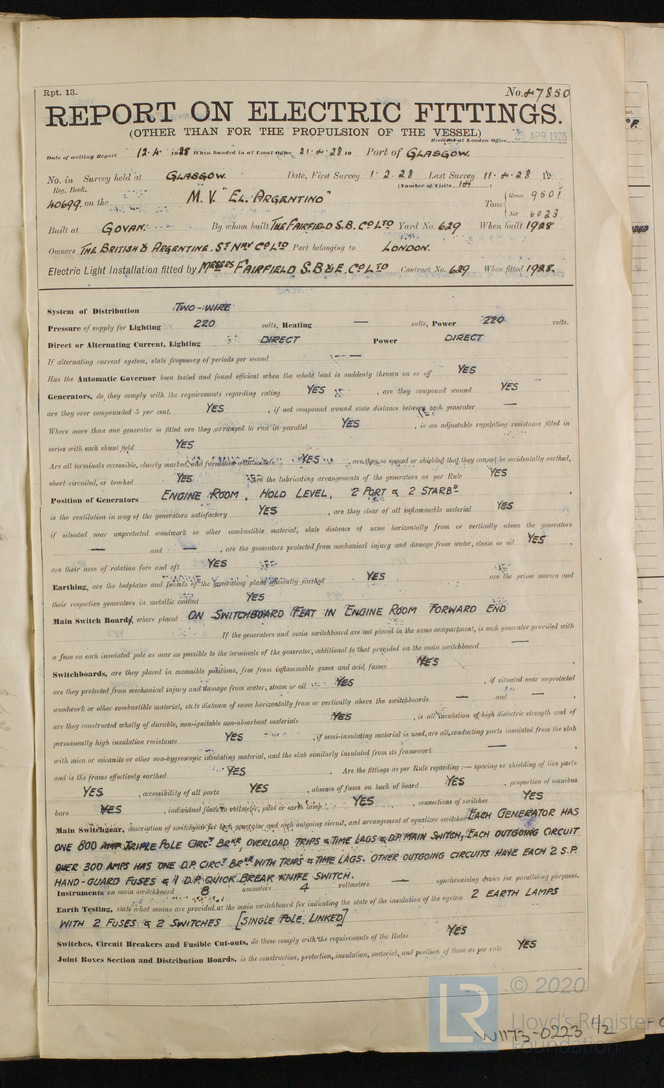 Rpt. 13.
No. 47850
REPORT ON ELECTRIC FITTINGS.
(OTHER THAN FOR THE PROPULSION OF THE VESSEL)
Received at London Office APR 1928
Date of writing Report 12.4.1928 When handed in at Local Office 21.4.28 19 Port of GLASGOW.
No. in Survey held at GLASGOW Date, First Survey 1.2.28 Last Survey 11.4.28 19
Reg. Book. (Number of Visits 14)
40699. on the M.V. "EL. ARGENTINO" Tons { Gross 9501
Net 6023
Built at GOVAN. By whom built THE FAIRFIELD S.B. CO LTD Yard No. 629 When built 1928
Owners THE BRITISH & ARGENTINE. ST NAV CO LTD Port belonging to LONDON.
Electric Light Installation fitted by MESSRS FAIRFIELD S.B & E. CO LTD Contract No. 629 When fitted 1928.
System of Distribution TWO-WIRE
Pressure of supply for Lighting 220 volts, Heating — volts, Power 220 volts.
Direct or Alternating Current, Lighting DIRECT Power DIRECT
If alternating current system, state frequency of periods per second —
Has the Automatic Governor been tested and found efficient when the whole load is suddenly thrown on or off YES
Generators, do they comply with the requirements regarding rating YES , are they compound wound YES
are they over compounded 5 per cent. YES , if not compound wound state distance between each generator —
Where more than one generator is fitted are they arranged to run in parallel YES , is an adjustable regulating resistance fitted in
series with each shunt field YES
Are all terminals accessible, clearly marked, and furnished with sockets YES , are they so spaced or shielded that they cannot be accidentally earthed,
short circuited, or touched YES Are the lubricating arrangements of the generators as per Rule YES
Position of Generators ENGINE ROOM, HOLD LEVEL, 2 PORT & 2 STARBD.
is the ventilation in way of the generators satisfactory YES , are they clear of all inflammable material YES
if situated near unprotected woodwork or other combustible material, state distance of same horizontally from or vertically above the generators
— and — , are the generators protected from mechanical injury and damage from water, steam or oil YES ,
are their axes of rotation fore and aft YES
Earthing, are the bedplates and frames of the generating plant efficiently earthed YES are the prime movers and
their respective generators in metallic contact YES
Main Switch Boards, where placed ON SWITCHBOARD FLAT IN ENGINE ROOM FORWARD END
If the generators and main switchboard are not placed in the same compartment, is each generator provided with
a fuse on each insulated pole as near as possible to the terminals of the generator, additional to that provided on the main switchboard —
Switchboards, are they placed in accessible positions, free from inflammable gases and acid fumes YES ,
are they protected from mechanical injury and damage from water, steam or oil YES , if situated near unprotected
woodwork or other combustible material, state distance of same horizontally from or vertically above the switchboards — and — ,
are they constructed wholly of durable, non-ignitable non-absorbent materials YES , is all insulation of high dielectric strength and of
permanently high insulation resistance YES , if semi-insulating material is used, are all conducting parts insulated from the slab
with mica or micanite or other non-hygroscopic insulating material, and the slab similarly insulated from its framework —
and is the frame effectively earthed YES . Are the fittings as per Rule regarding :— spacing or shielding of live parts
YES , accessibility of all parts YES , absence of fuses on back of board YES , proportion of omnibus
bars YES , individual fuses to voltmeter, pilot or earth lamp YES , connections of switches YES
Main Switchgear, description of switchgear for each generator and each outgoing circuit, and arrangement of equalizer switches EACH GENERATOR HAS
ONE 800 AMP TRIPLE POLE CIRCT BRKR OVERLOAD TRIPS & TIME LAGS & D.P. MAIN SWITCH, EACH OUTGOING CIRCUIT
OVER 300 AMPS HAS ONE D.P. CIRCT BRKR WITH TRIPS & TIME LAGS. OTHER OUTGOING CIRCUITS HAVE EACH 2 S.P.
HAND-GUARD FUSES & 1 D.P. QUICK BREAK KNIFE SWITCH.
Instruments on main switchboard 8 ammeters 4 voltmeters — synchronising device for paralleling purposes.
Earth Testing, state what means are provided at the main switchboard for indicating the state of the insulation of the system 2 EARTH LAMPS
WITH 2 FUSES & 2 SWITCHES [SINGLE POLE, LINKED]
Switches, Circuit Breakers and Fusible Cut-outs, do these comply with the requirements of the Rules YES
Joint Boxes Section and Distribution Boards, is the construction, protection, insulation, material, and position of these as per rule YES
© 2020
LR
Lloyd's Register
Foundation
W1173-0223 1/2